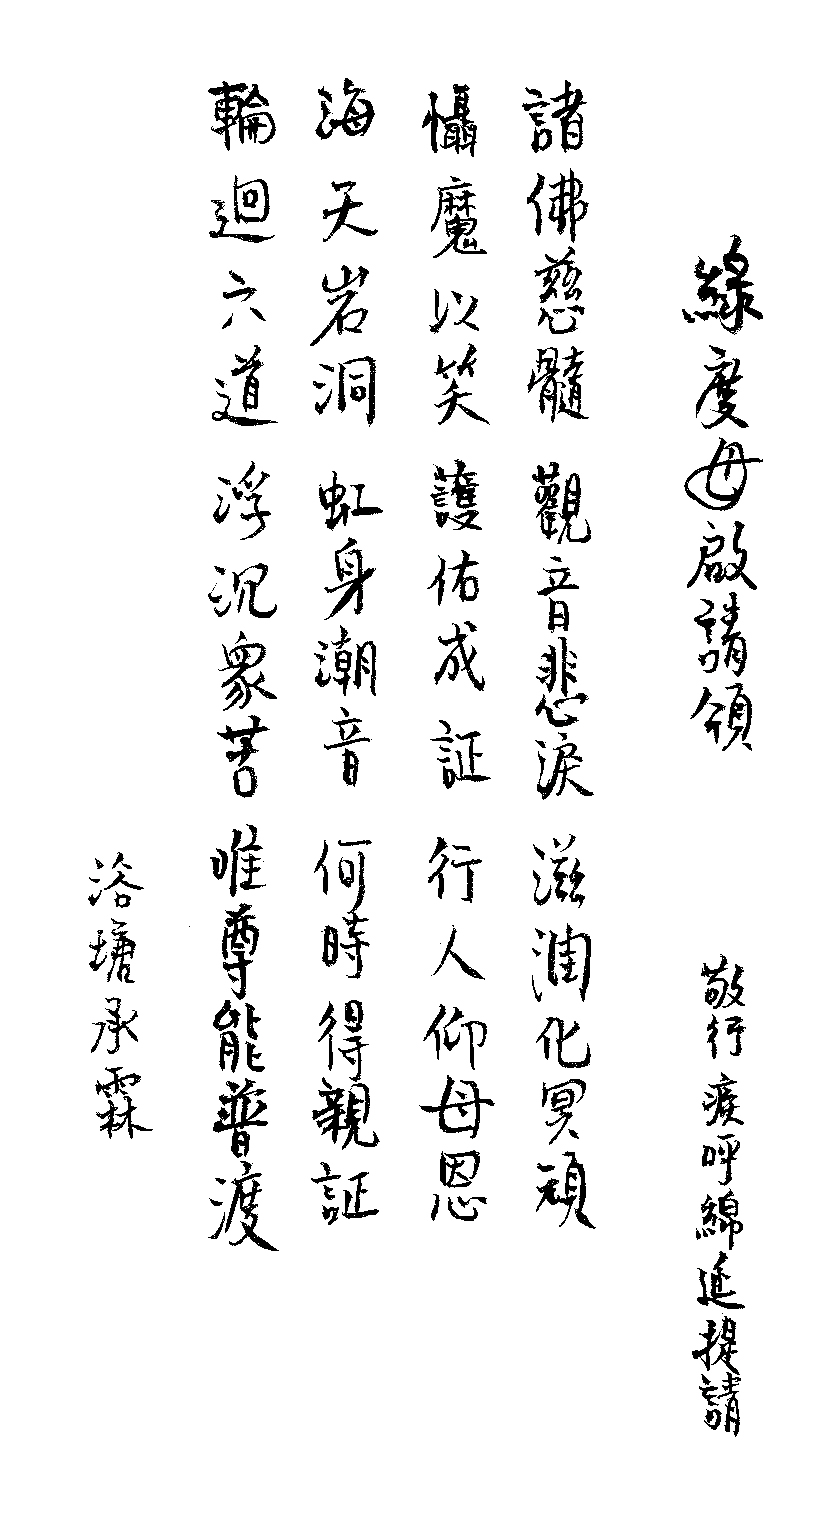 綠度母啟請頌 敬行疾呼綿延提請
諸佛慈髓 觀音悲淚 滋潤化冥頑
懾魔以笑 護佑成証 行人仰母恩
海天岩洞 虹身潮音 何時得親証
輪迴六道 浮沉衆苦 唯尊能普渡
浴塘承霖